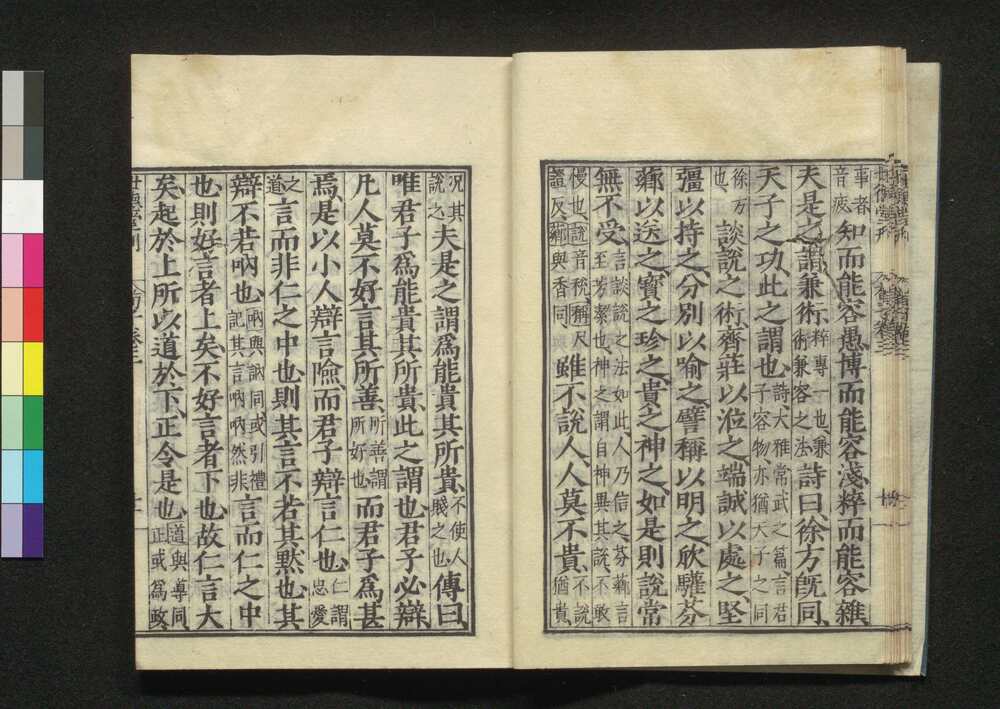 事者
音疲 知而能容愚、博而能容淺、粹而能容雜、
夫是之謂兼術、粹專也兼術兼容之法 詩曰、徐方旣同、
天子之功、此之謂也、詩大雅常武之篇言君子容物亦猶天子之同
徐方也、 談說之術、齊莊以涖之、端誠以處之、堅
彊以持之、分別以喻之、譬稱以明之、欣驩芬
薌以送之、寳之珍之、貴之神之、如是則說常
無不受、言談說之法如此人乃信之芬薌言至芳潔也神之謂自神異其說不敢
慢也說音稅稱尺證反薌與香同 雖不說人、人莫不貴、不說猶貴
況其說之 夫是之謂爲能貴其所貴、不使人賤之也 傳曰、
唯君子爲能貴其所貴、此之謂也、君子必辯、
凡人莫不好言其所善、所善謂所好也 而君子爲甚
焉、是以小人辯言險、而君子辯言仁也、仁謂忠愛
之道 言而非仁之中也、則其言不若其默也、其
辯不若吶也、吶與訥同或引禮記其言吶吶然非 言而仁之中
也、則好言者上矣、不好言者下也、故仁言大
矣、起於上所以道於下、正令是也、道與導同正或爲政